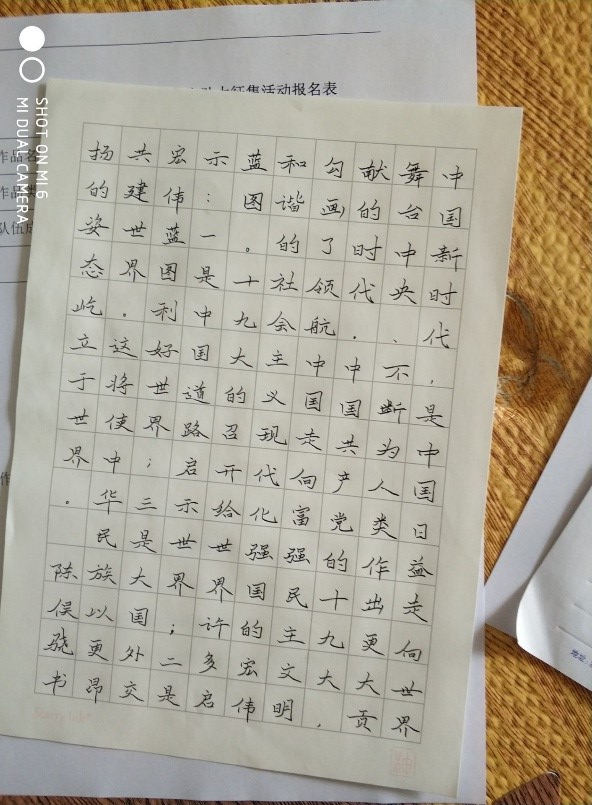 中国新时代,是中国日益走向世界
舞台中央、不断为人类作出更大贡
献的时代。中国共产党的十九大,
勾画了领航中国走向富强民主文明
和谐的社会主义现代化强国的宏伟
蓝图。十九大的召开给世界许多启
示:一是中国道路启示世界;二是
宏伟蓝图利好世界;三是大国外交
共建世界。这将使中华民族以更昂
扬的姿态屹立于世界。 陈骁书
征集活动报名表
作品名
作品类
队伍成
作
地址
SHOT ON MI6
MI DUAL CAMERA